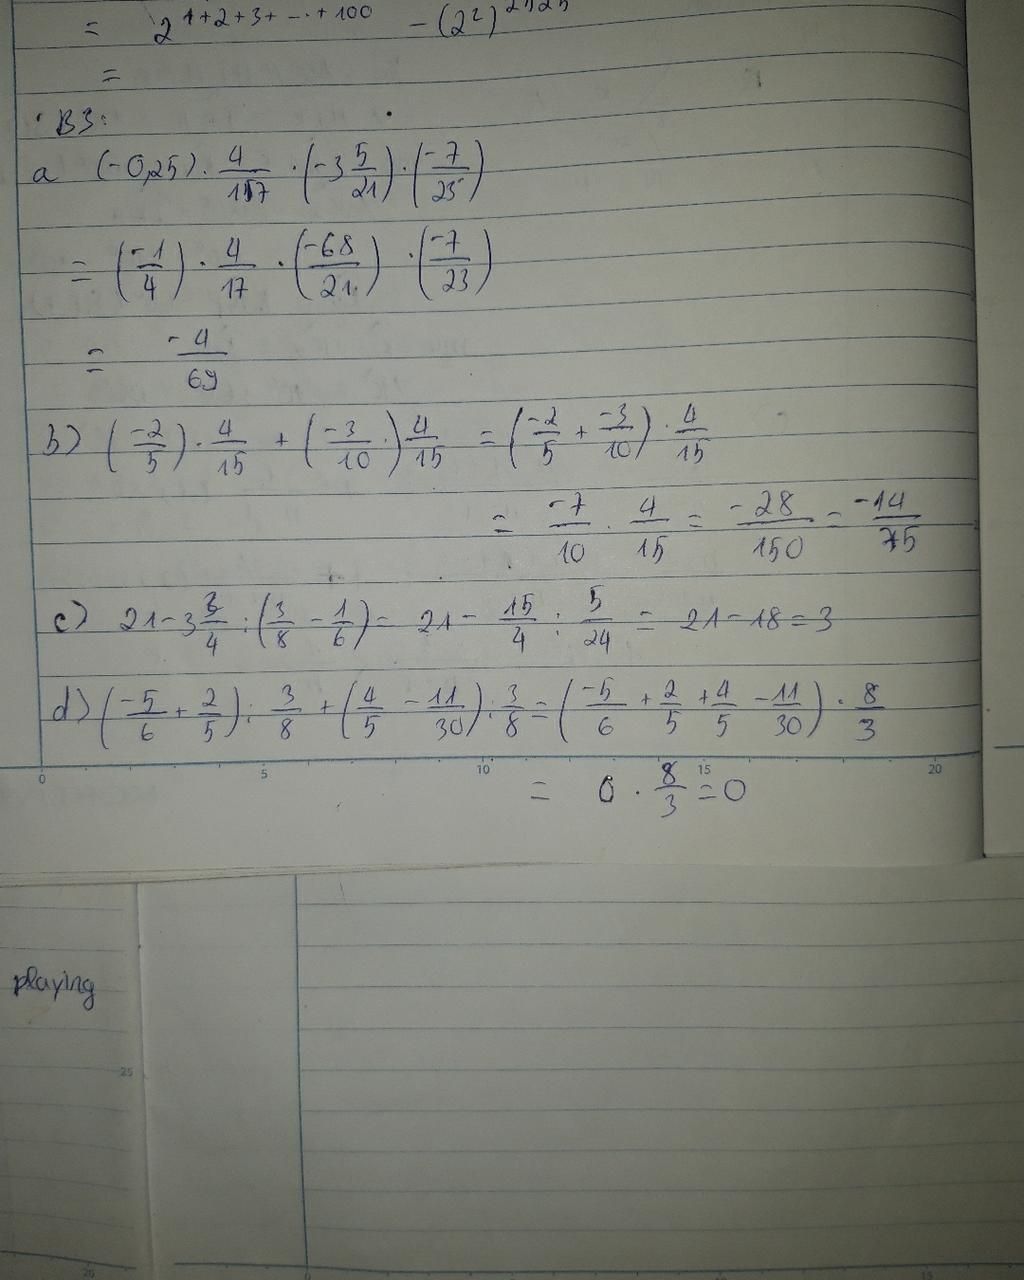 = 2^{1+2+3+...+100} - (2²)^{2525}
=
B3:
a (-0,25) . 4/17 . (-3 5/21) . (-7/23)
= (-1/4) . 4/17 . (-68/21) . (-7/23)
= -4/69
b) (-2/5) . 4/15 + (-3/10 .) 4/15 = (-2/5 + -3/10) . 4/15
= -7/10 . 4/15 = -28/150 = -14/75
c) 21 - 3 3/4 : (3/8 - 1/6) = 21 - 15/4 : 5/24 = 21 - 18 = 3
d) (-5/6 + 2/5) : 3/8 + (4/5 - 11/30) : 3/8 = (-5/6 + 2/5 + 4/5 - 11/30) . 8/3
0 5 10 15 20
= 0 . 8/3 = 0
playing
25